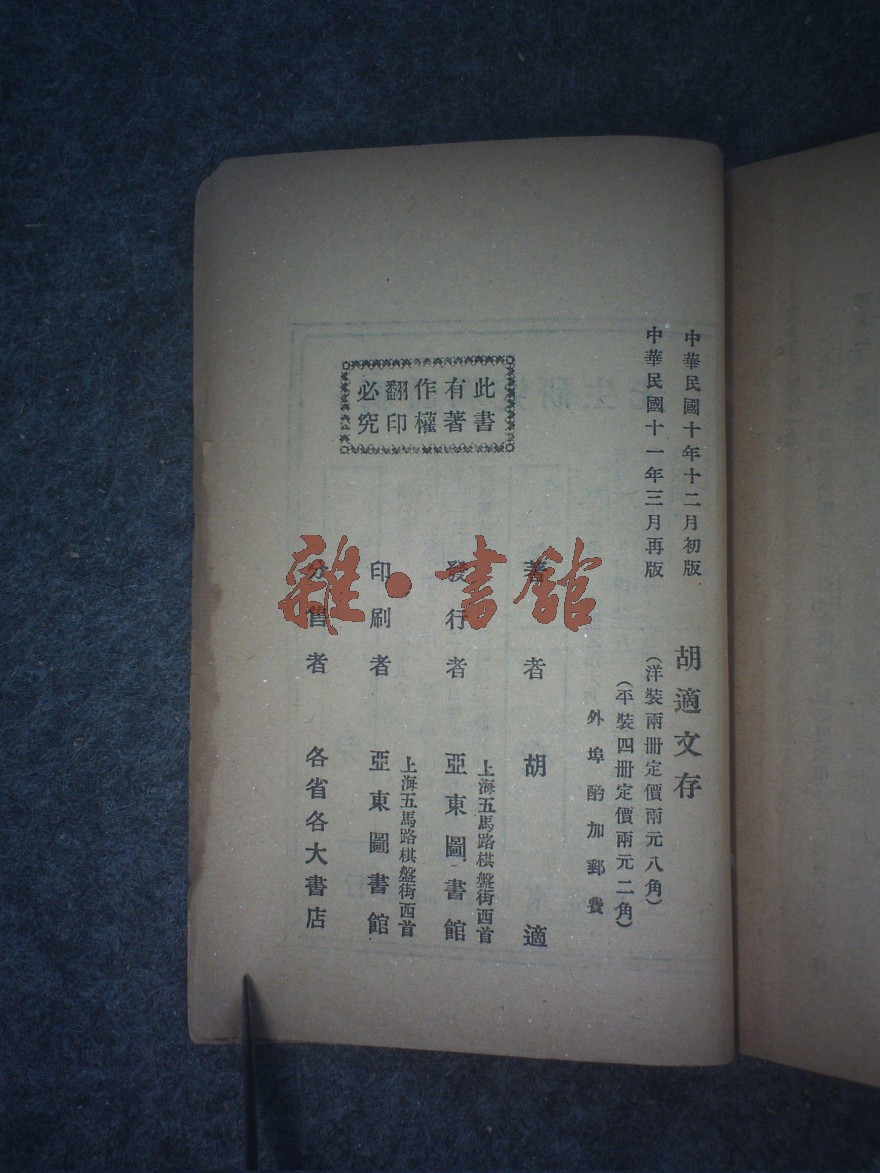 中華民國十年十二月初版
中華民國十一年三月再版
胡適文存
（洋裝兩册定價兩元八角）
（平裝四册定價兩元二角）
外埠酌加郵費
著者 胡適
發行者 上海五馬路棋盤街西首
亞東圖書館
印刷者 上海五馬路棋盤街西首
亞東圖書館
分售者 各省各大書店
此書
有著
作權
翻印
必究
雜·書館